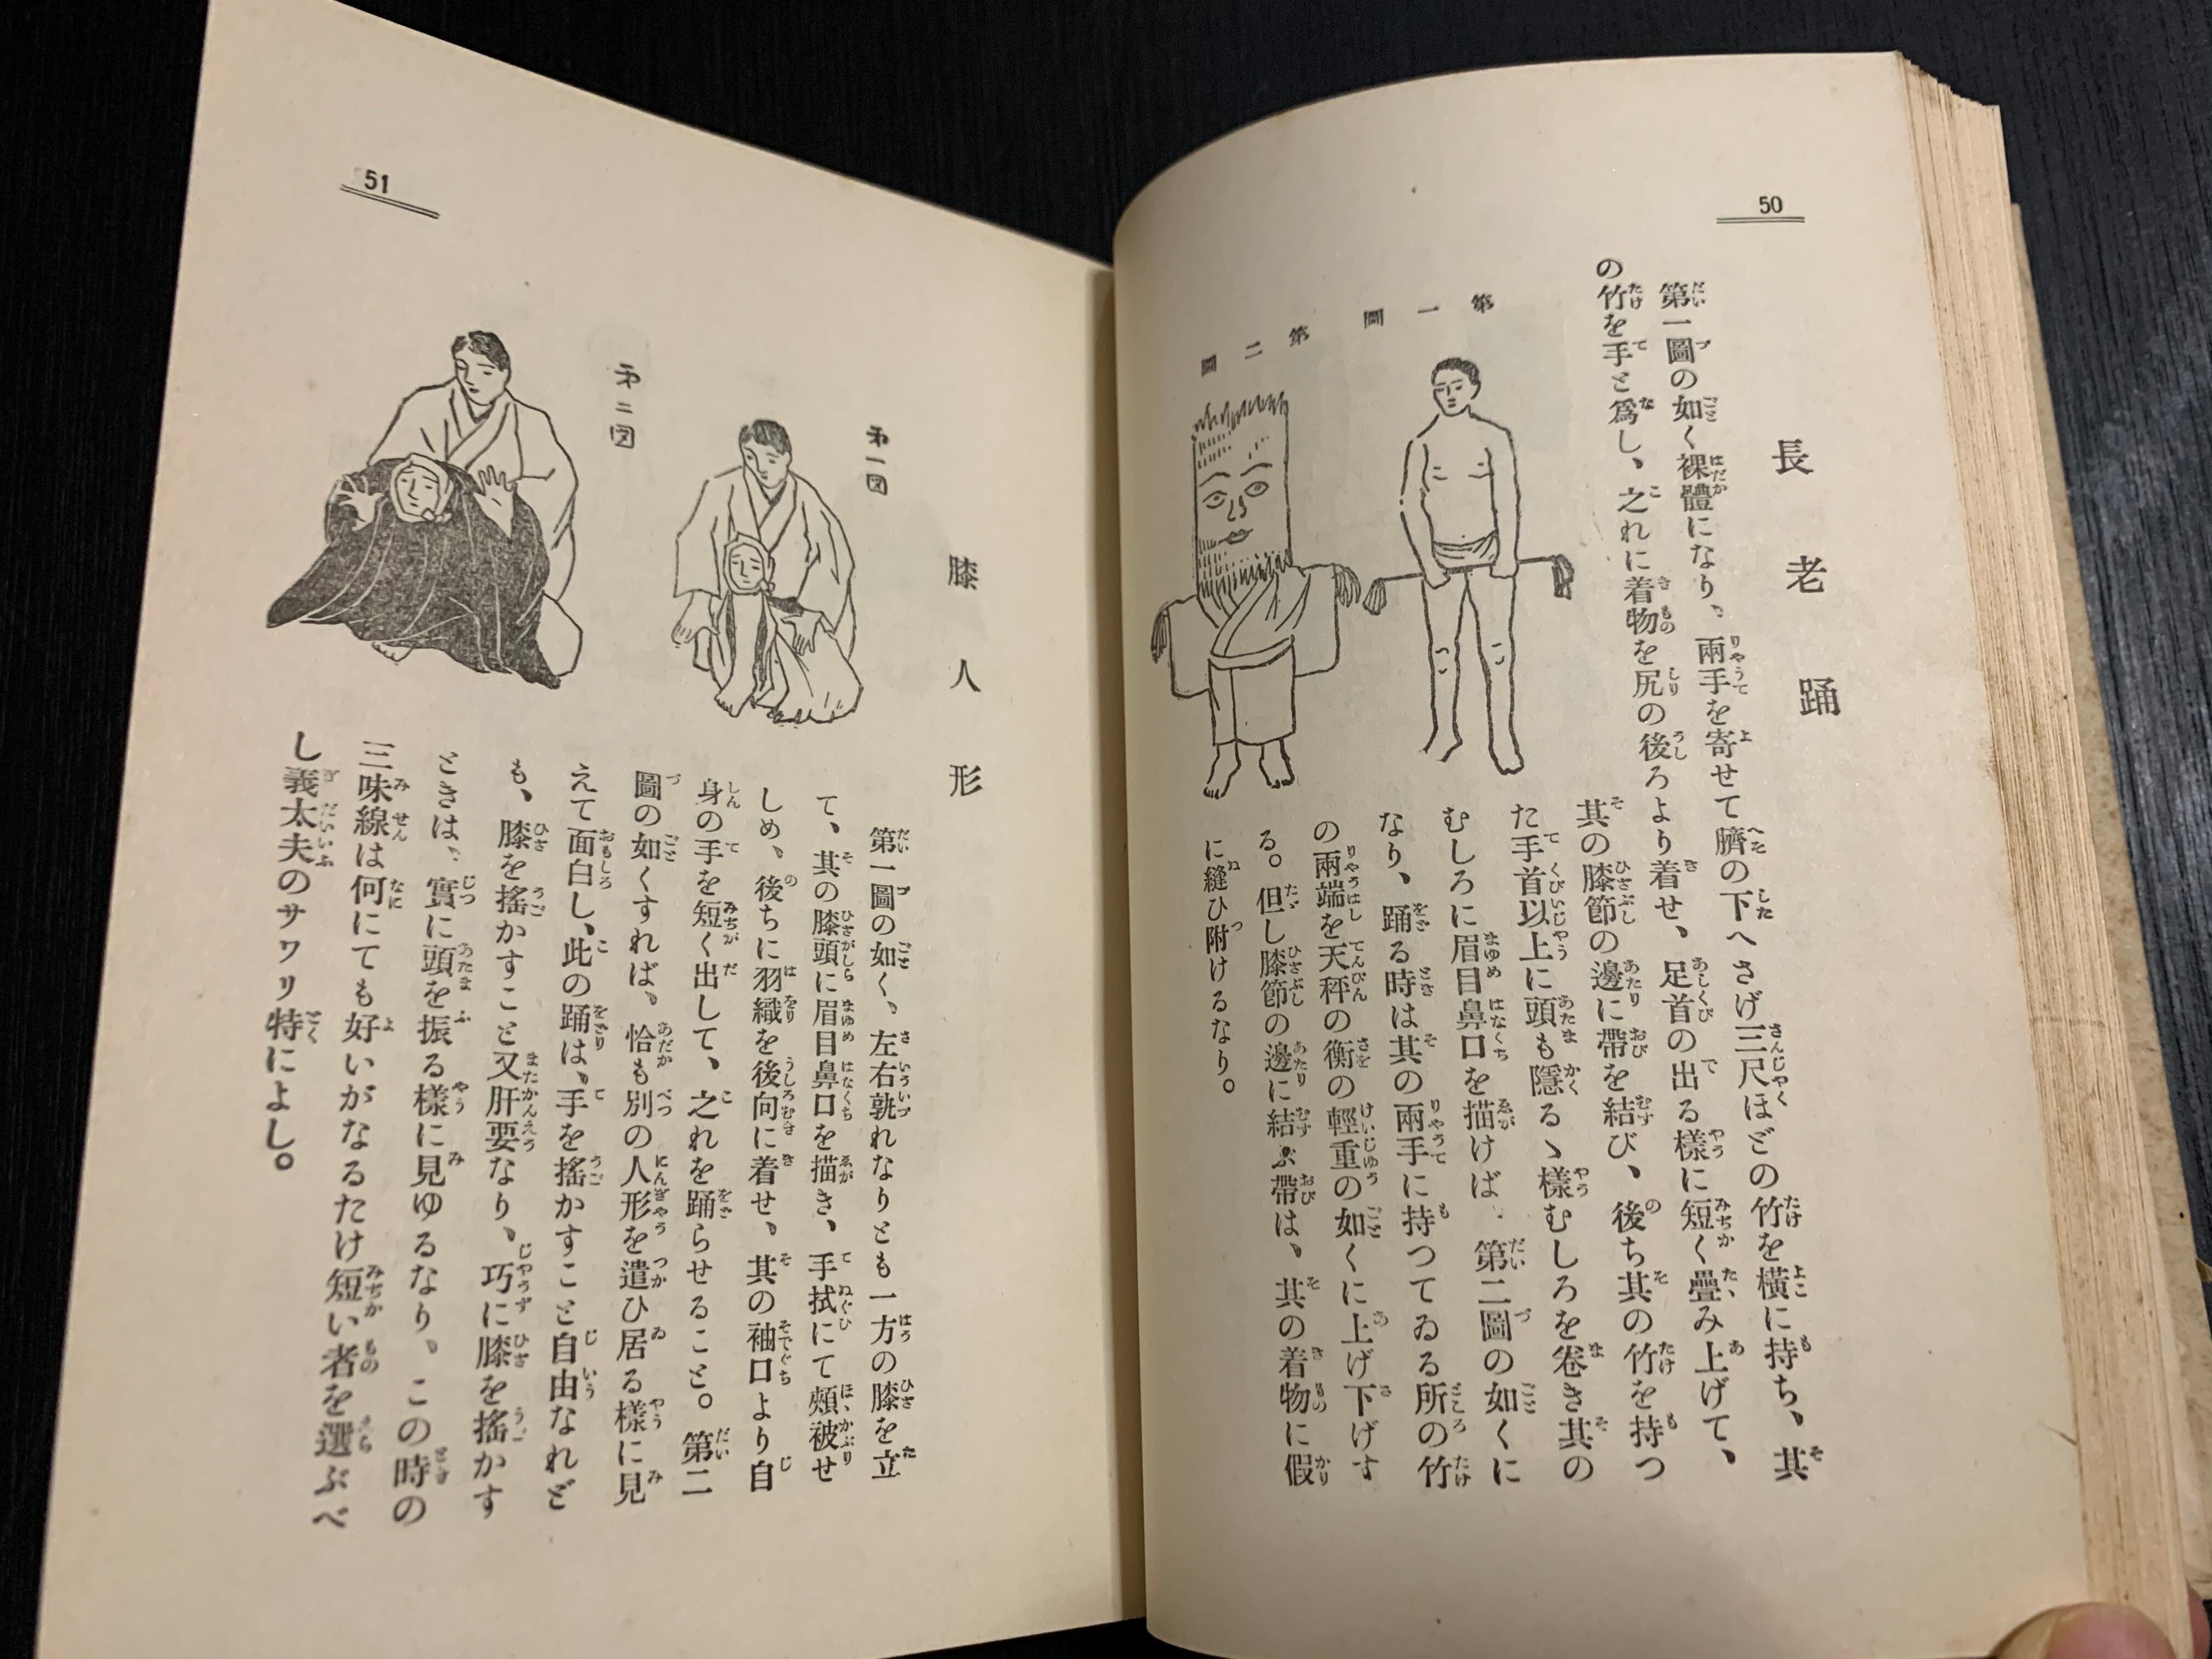 50
長老踊
第一圖の如く裸體になり、兩手を寄せて臍の下へさげ三尺ほどの竹を橫に持ち、其
の竹を手と爲し、之れに着物を尻の後ろより着せ、足首の出る樣に短く疊み上げて、
第一圖
第二圖
其の膝節の邊に帶を結び、後ち其の竹を持つ
た手首以上に頭も隱るゝ樣むしろを卷き其の
むしろに眉目鼻口を描けば、第二圖の如くに
なり、踊る時は其の兩手に持つてゐる所の竹
の兩端を天秤の衡の輕重の如くに上げ下げす
る。但し膝節の邊に結ぶ帶は、其の着物に假
に縫ひ附けるなり。
51
膝人形
第一図
第二図
第一圖の如く、左右孰れなりとも一方の膝を立
て、其の膝頭に眉目鼻口を描き、手拭にて頰被せ
しめ、後ちに羽織を後向に着せ、其の袖口より自
身の手を短く出して、之れを踊らせること。第二
圖の如くすれば、恰も別の人形を遣ひ居る樣に見
えて面白し、此の踊は、手を搖かすこと自由なれど
も、膝を搖かすこと又肝要なり、巧に膝を搖かす
ときは、實に頭を振る樣に見ゆるなり、この時の
三味線は何にても好いがなるたけ短い者を選ぶべ
し義太夫のサワリ特によし。